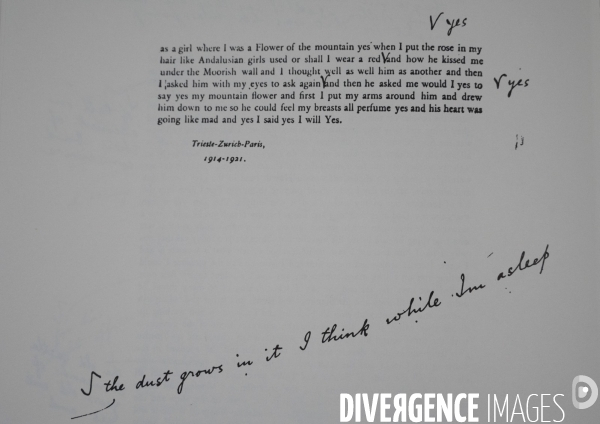 V yes
as a girl where I was a Flower of the mountain yes when I put the rose in my
hair like Andalusian girls used or shall I wear a red V and how he kissed me
under the Moorish wall and I thought well as well him as another and then
I asked him with my eyes to ask again V and then he asked me would I yes to
V yes
say yes my mountain flower and first I put my arms around him and drew
him down to me so he could feel my breasts all perfume yes and his heart was
going like mad and yes I said yes I will Yes.
Trieste-Zurich-Paris,
1914-1921.
the dust grows in it I think while I'm asleep
DIVERGENCE IMAGES